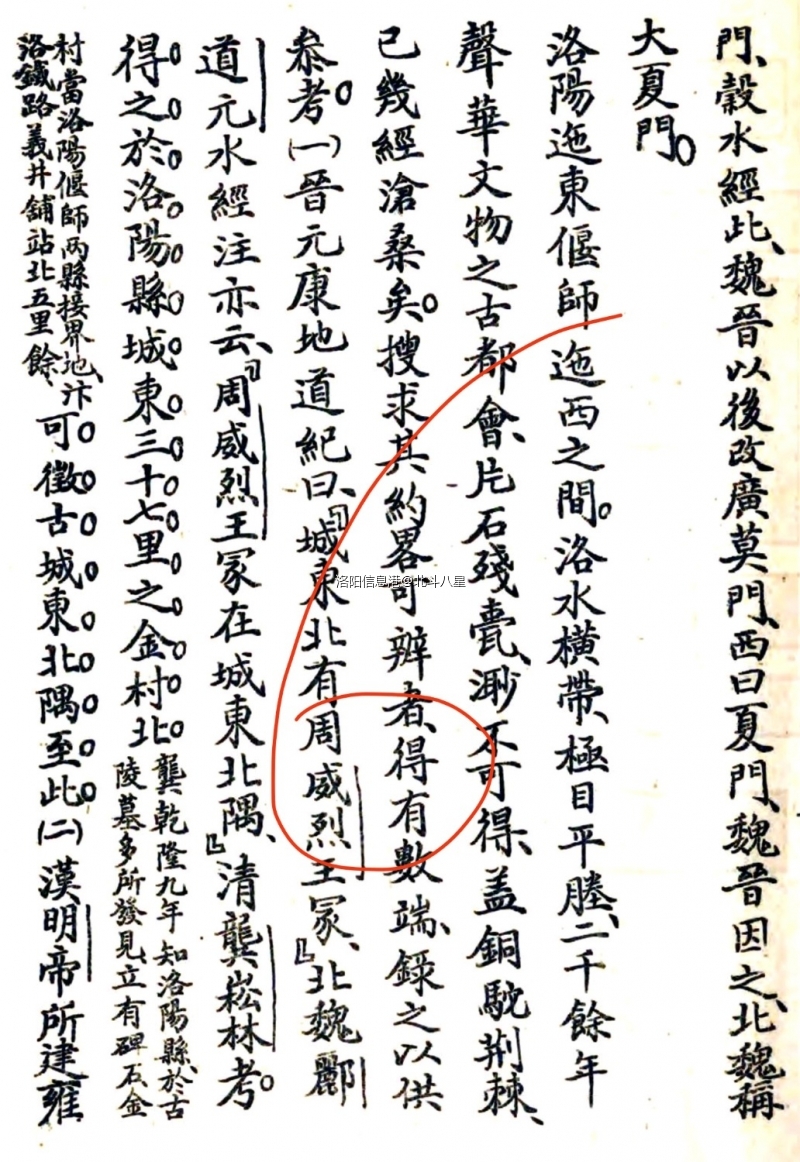 門、穀水經此、魏晉以後改廣莫門、西曰夏門、魏晉因之、北魏稱
大夏門。
洛陽迤東偃師迤西之間。洛水橫帶、極目平塍、二千餘年
聲華文物之古都會、片石殘甍、渺不可得、盖銅駝荆棘、
已幾經滄桑矣。搜求其約畧可辨者、得有數端、錄之以供
叅考。(一)晉元康地道紀曰、『城東北有周威烈王冢、』北魏酈
道元水經注亦云、『周威烈王冢在城東北隅、』清龔崧林考。
得之於洛陽縣城東三十七里之金村北
龔乾隆九年知洛陽縣、於古
陵墓多所發見、立有碑石、金
村當洛陽偃師兩縣接界地、汴
洛鐵路義井舖站北五里餘、
可徵古城東北隅至此。(二)漢明帝所建雍
洛阳信息港@北斗八星